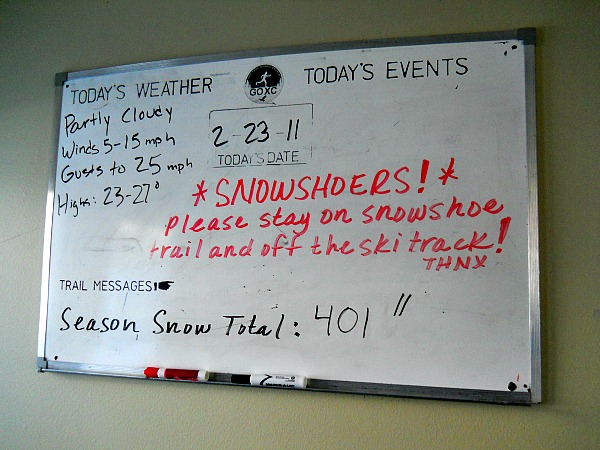 TODAY'S WEATHER
GOXC
TODAY'S EVENTS
Partly Cloudy
Winds 5-15 mph
Gusts to 25 mph
Highs: 23-27°
2-23-11
TODAY'S DATE
*SNOWSHOERS!*
please stay on snowshoe
trail and off the ski track!
THNX
TRAIL MESSAGES!
Season Snow Total: 401"